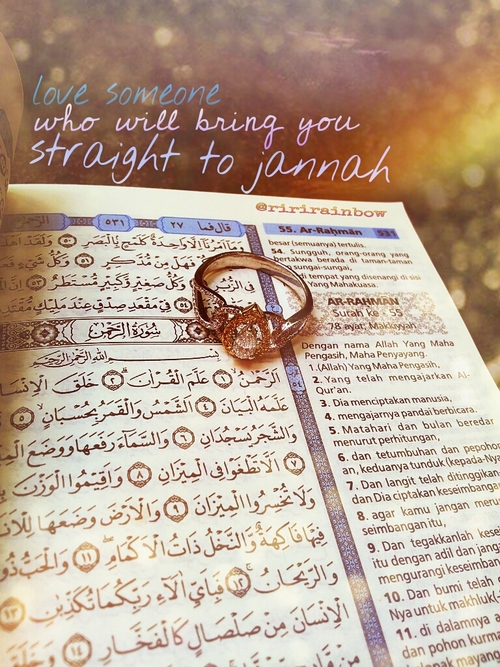 love someone
who will bring you
straight to jannah
@ririrainbow
قال فما ٢٧
٥٣١
وَمَا أَمْرُنَا إِلَّا وَاحِدَةٌ كَلَمْحٍ بِالْبَصَرِ ٥٠ وَلَقَدْ
فَهَلْ مِنْ مُدَّكِرٍ ٥١
وَكُلُّ صَغِيرٍ وَكَبِيرٍ مُسْتَطَرٌ ٥٣
فِي مَقْعَدِ صِدْقٍ عِنْدَ مَلِيكٍ
سُورَةُ الرَّحْمٰنِ
بِسْمِ اللَّهِ الرَّحْمٰنِ الرَّحِيمِ
الرَّحْمٰنُ ١ عَلَّمَ الْقُرْاٰنَ ٢ خَلَقَ الْإِنْسَا
عَلَّمَهُ الْبَيَانَ ٤ الشَّمْسُ وَالْقَمَرُ بِحُسْبَانٍ ٥
وَالشَّجَرُ يَسْجُدَانِ ٦ وَالسَّمَاءَ رَفَعَهَا وَوَضَعَ
٧ أَلَّا تَطْغَوْا فِي الْمِيزَانِ ٨ وَأَقِيمُوا الْوَزْنَ
وَلَا تُخْسِرُوا الْمِيزَانَ ٩ وَالْأَرْضَ وَضَعَهَا
فِيهَا فَاكِهَةٌ وَالنَّخْلُ ذَاتُ الْأَكْمَامِ ١١ وَالْحَبُّ ذُو
وَالرَّيْحَانُ ١٢ فَبِأَيِّ اٰلَاءِ رَبِّكُمَا تُكَذِّبٰنِ ١٣
الْإِنْسَانَ مِنْ صَلْصَالٍ كَالْفَخَّارِ ١٤
55. Ar-Raḥmān 531
besar (semuanya) tertulis.
54. Sungguh, orang-orang yang
bertakwa berada di taman-taman
sungai-sungai,
di tempat yang disenangi di sisi
Yang Mahakuasa.
AR-RAḤMĀN
Surah ke - 55
78 ayat; Makkiyyah
Dengan nama Allah Yang Maha
Pengasih, Maha Penyayang.
1. (Allah) Yang Maha Pengasih,
2. Yang telah mengajarkan Al-
Qur'an.
3. Dia menciptakan manusia,
4. mengajarnya pandai berbicara.
5. Matahari dan bulan beredar
menurut perhitungan,
6. dan tetumbuhan dan pepohon
an, keduanya tunduk (kepada-Nya)
7. Dan langit telah ditinggikan
dan Dia ciptakan keseimbangan
8. agar kamu jangan meru
seimbangan itu,
9. Dan tegakkanlah kese
itu dengan adil dan jang
mengurangi keseimban
10. Dan bumi telah di
Nya untuk makhluk-
11. di dalamnya a
dan pohon kurma
mayang